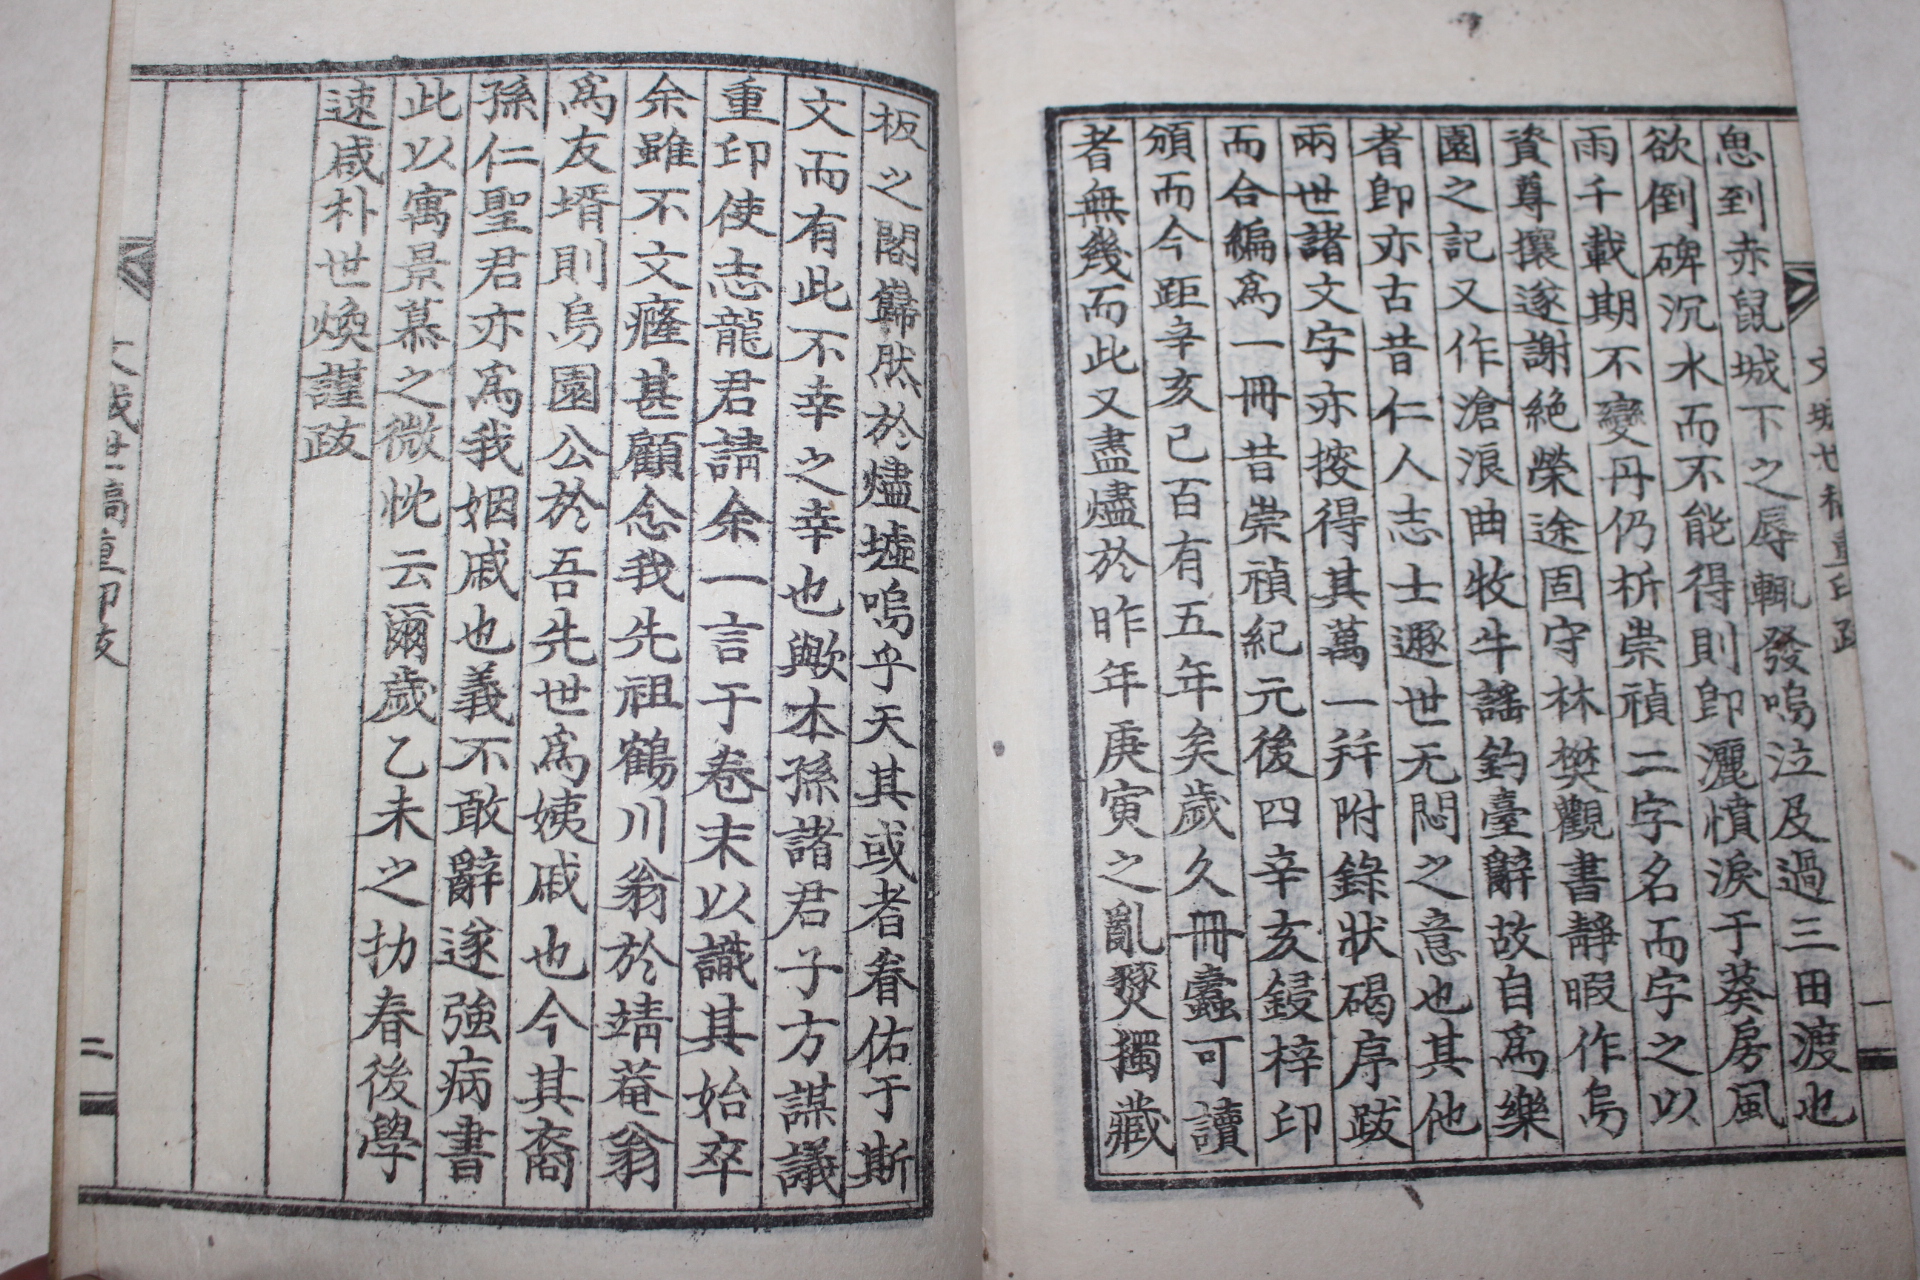 恖到赤鼠城下之辱輒發嗚泣及過三田渡也
欲倒碑沉水而不能得則卽灑憤淚于葵房風
雨千載期不變丹仍析崇禎二字名而字之以
資尊攘遂謝絶榮途固守林樊觀書靜暇作烏
園之記又作滄浪曲牧牛謠釣臺辭故自爲樂
者卽亦古昔仁人志士遯世无悶之意也其他
兩世諸文字亦按得其萬一幷附錄狀碣序跋
而合編爲一冊昔崇禎紀元後四辛亥鋟梓印
頒而今距辛亥已百有五年矣歲久冊蠹可讀
者無幾而此又盡燼於昨年庚寅之亂燹獨藏
板之閣巋然於燼墟嗚乎天其或者眷佑于斯
文而有此不幸之幸也歟本孫諸君子方謀議
重印使志龍君請余一言于卷末以識其始卒
余雖不文癃甚顧念我先祖鶴川翁於靖菴翁
爲友壻則烏園公於吾先世爲姨戚也今其裔
孫仁聖君亦爲我姻戚也義不敢辭遂強病書
此以寓景慕之微忱云爾歲乙未之抐春後學
速咸朴世煥謹跋
二